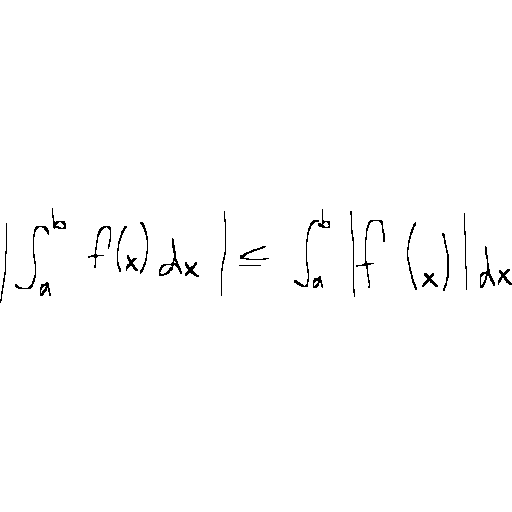 |∫_a^b f(x) dx| ≤ ∫_a^b |f(x)| dx